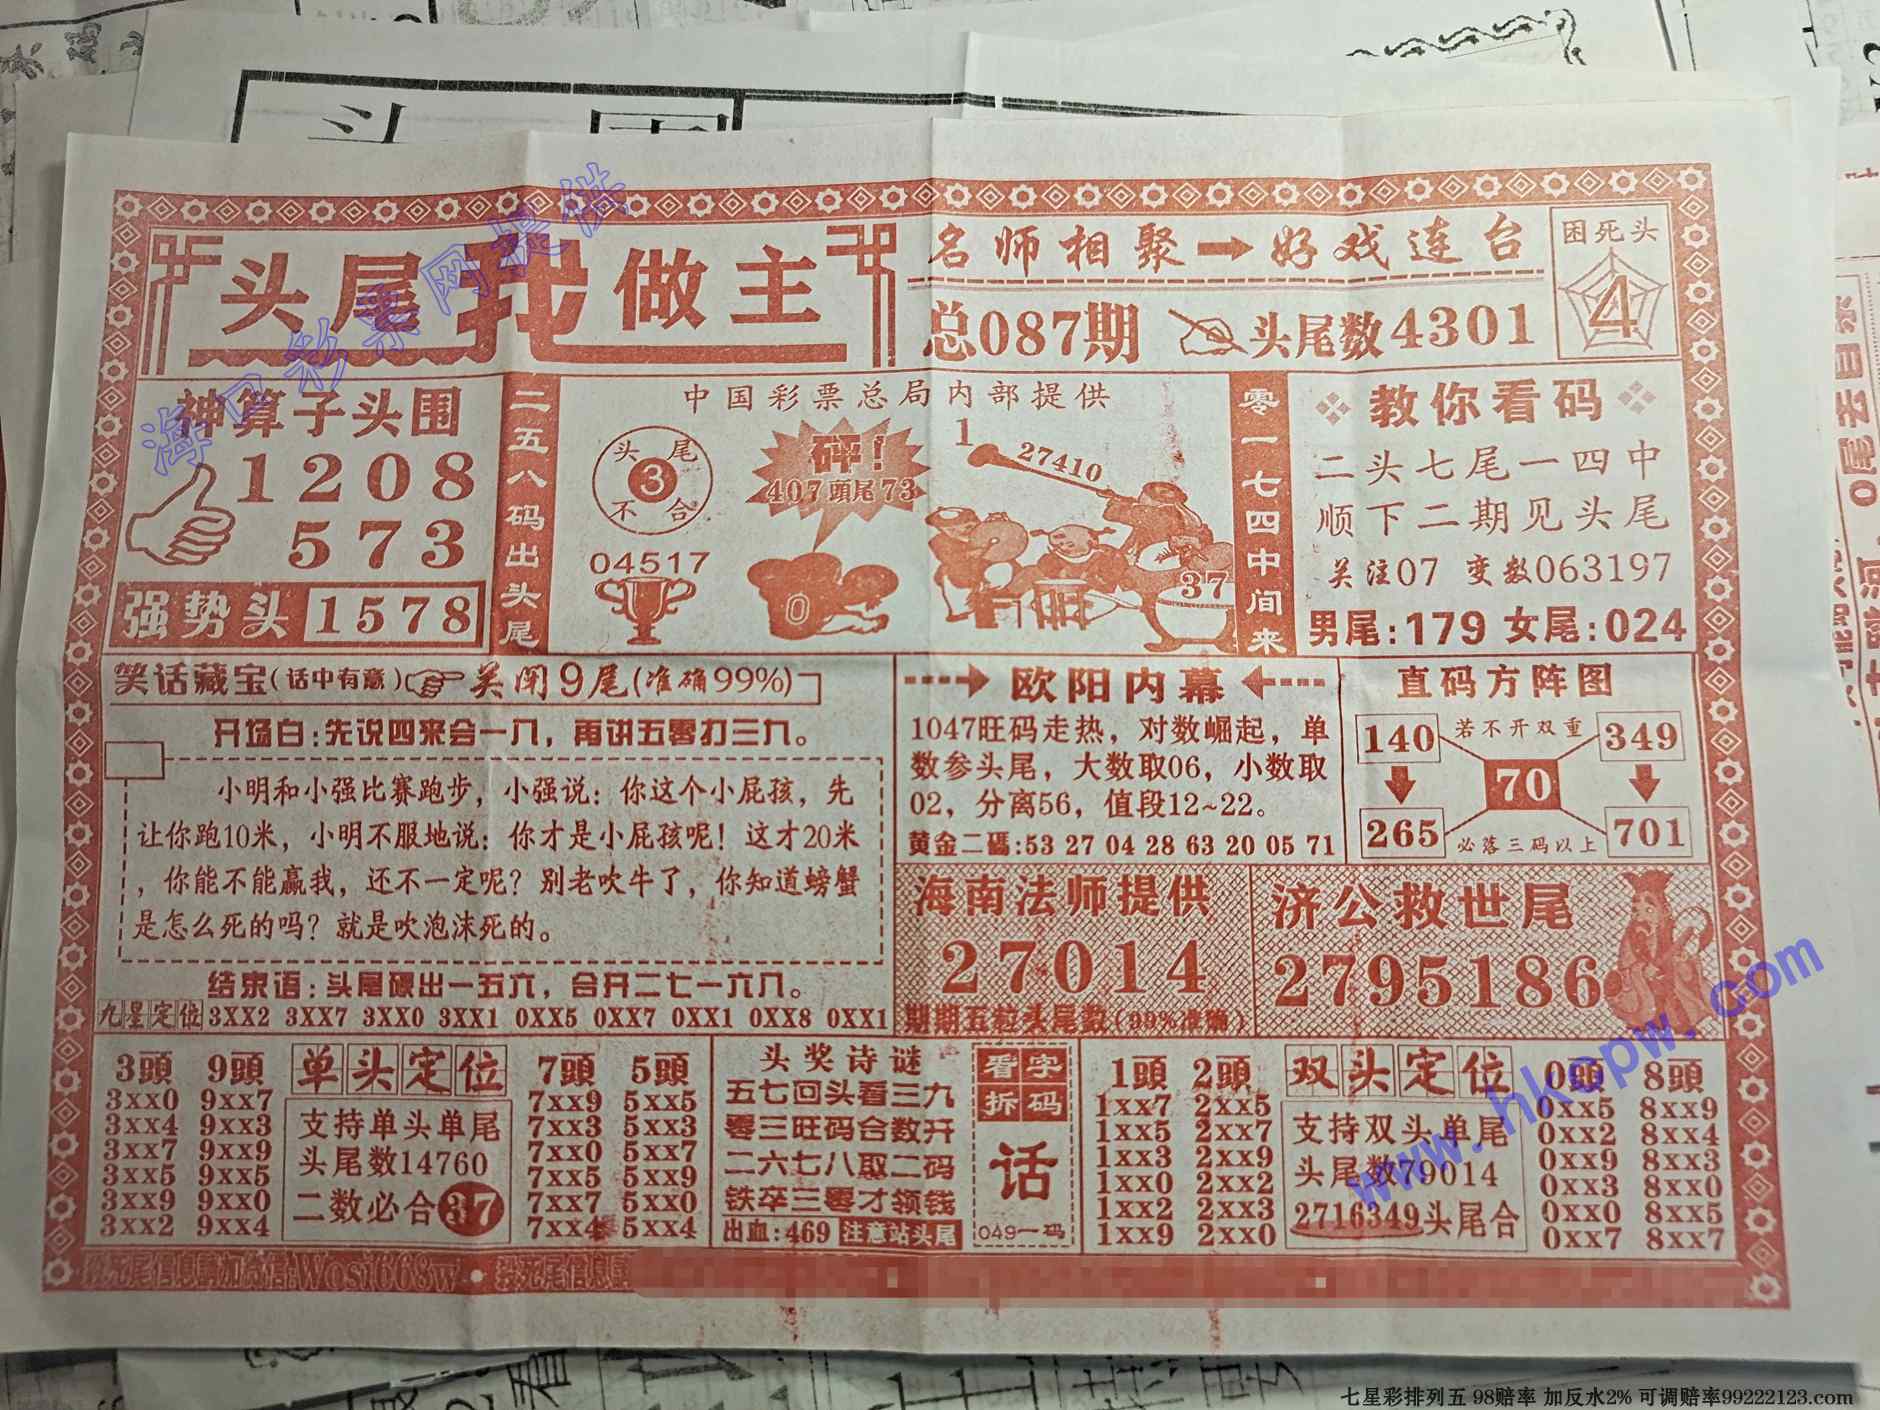 头尾我做主
名师相聚→好戏连台
总087期
头尾数4301
困死头
4
神算子头围
1208
573
强势头 1578
二五八码出头尾
中国彩票总局内部提供
头尾
3
不合
04517
砰！
407頭尾73
0
1
27410
37
零一七四中间来
教你看码
二头七尾一四中
顺下二期见头尾
关注07 变数063197
男尾:179 女尾:024
笑话藏宝(话中有意) 关闭9尾(准确99%)
开场白:先说四来会一八，再讲五零打三九。
小明和小强比赛跑步，小强说：你这个小屁孩，先
让你跑10米，小明不服地说：你才是小屁孩呢！这才20米
，你能不能赢我，还不一定呢？别老吹牛了，你知道螃蟹
是怎么死的吗？就是吹泡沫死的。
结束语:头尾硬出一五六，合开二七一六八。
九星定位 3XX2 3XX7 3XX0 3XX1 0XX5 0XX7 0XX1 0XX8 0XX1
欧阳内幕
1047旺码走热，对数崛起，单
数参头尾，大数取06，小数取
02，分离56，值段12~22。
黄金二碼:53 27 04 28 63 20 05 71
直码方阵图
140 若不开双重 349
70
265 必落三码以上 701
海南法师提供
27014
期期五粒头尾数(99%准确)
济公救世尾
2795186
3頭 9頭
3xx0 9xx7
3xx4 9xx3
3xx7 9xx9
3xx5 9xx5
3xx9 9xx0
3xx2 9xx4
单头定位
支持单头单尾
头尾数14760
二数必合37
7頭 5頭
7xx9 5xx5
7xx3 5xx3
7xx0 5xx7
7xx5 5xx9
7xx7 5xx0
7xx4 5xx4
头奖诗谜
五七回头看三九
零三旺码合数开
二六七八取二码
铁卒三零才领钱
出血:469 注意站头尾
看字
拆码
话
049一码
1頭 2頭
1xx7 2xx5
1xx5 2xx7
1xx3 2xx9
1xx0 2xx2
1xx2 2xx3
1xx9 2xx0
双头定位
支持双头单尾
头尾数79014
2716349头尾合
0頭 8頭
0xx5 8xx9
0xx2 8xx4
0xx9 8xx3
0xx3 8xx0
0xx0 8xx5
0xx7 8xx7
海口彩票网提供
www.hkcpw.com
七星彩排列五 98赔率 加反水2% 可调赔率99222123.com